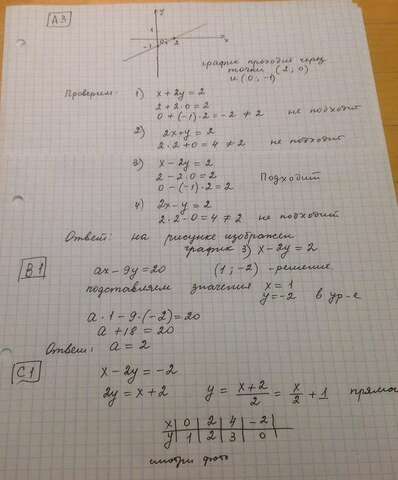 A3
y
1
0
2
x
-1
график проходит через
точки (2; 0)
и (0; -1)
Проверяем: 1) x + 2y = 2
2 + 2·0 = 2
0 + (-1)·2 = -2 ≠ 2 не подходит
2) 2x + y = 2
2·2 + 0 = 4 ≠ 2 не подходит
3) x - 2y = 2
2 - 2·0 = 2 Подходит
0 - (-1)·2 = 2
4) 2x - y = 2
2·2 - 0 = 4 ≠ 2 не подходит
Ответ: на рисунке изображен
график 3) x - 2y = 2
B1
ax - 9y = 20 (1; -2) - решение
подставляем значения x = 1
y = -2 в ур-е
a·1 - 9·(-2) = 20
a + 18 = 20
Ответ: a = 2
C1
x - 2y = -2
2y = x + 2 y = x+2/2 = x/2 + 1 прямая
x | 0 | 2 | 4 | -2
y | 1 | 2 | 3 | 0
смотри фото